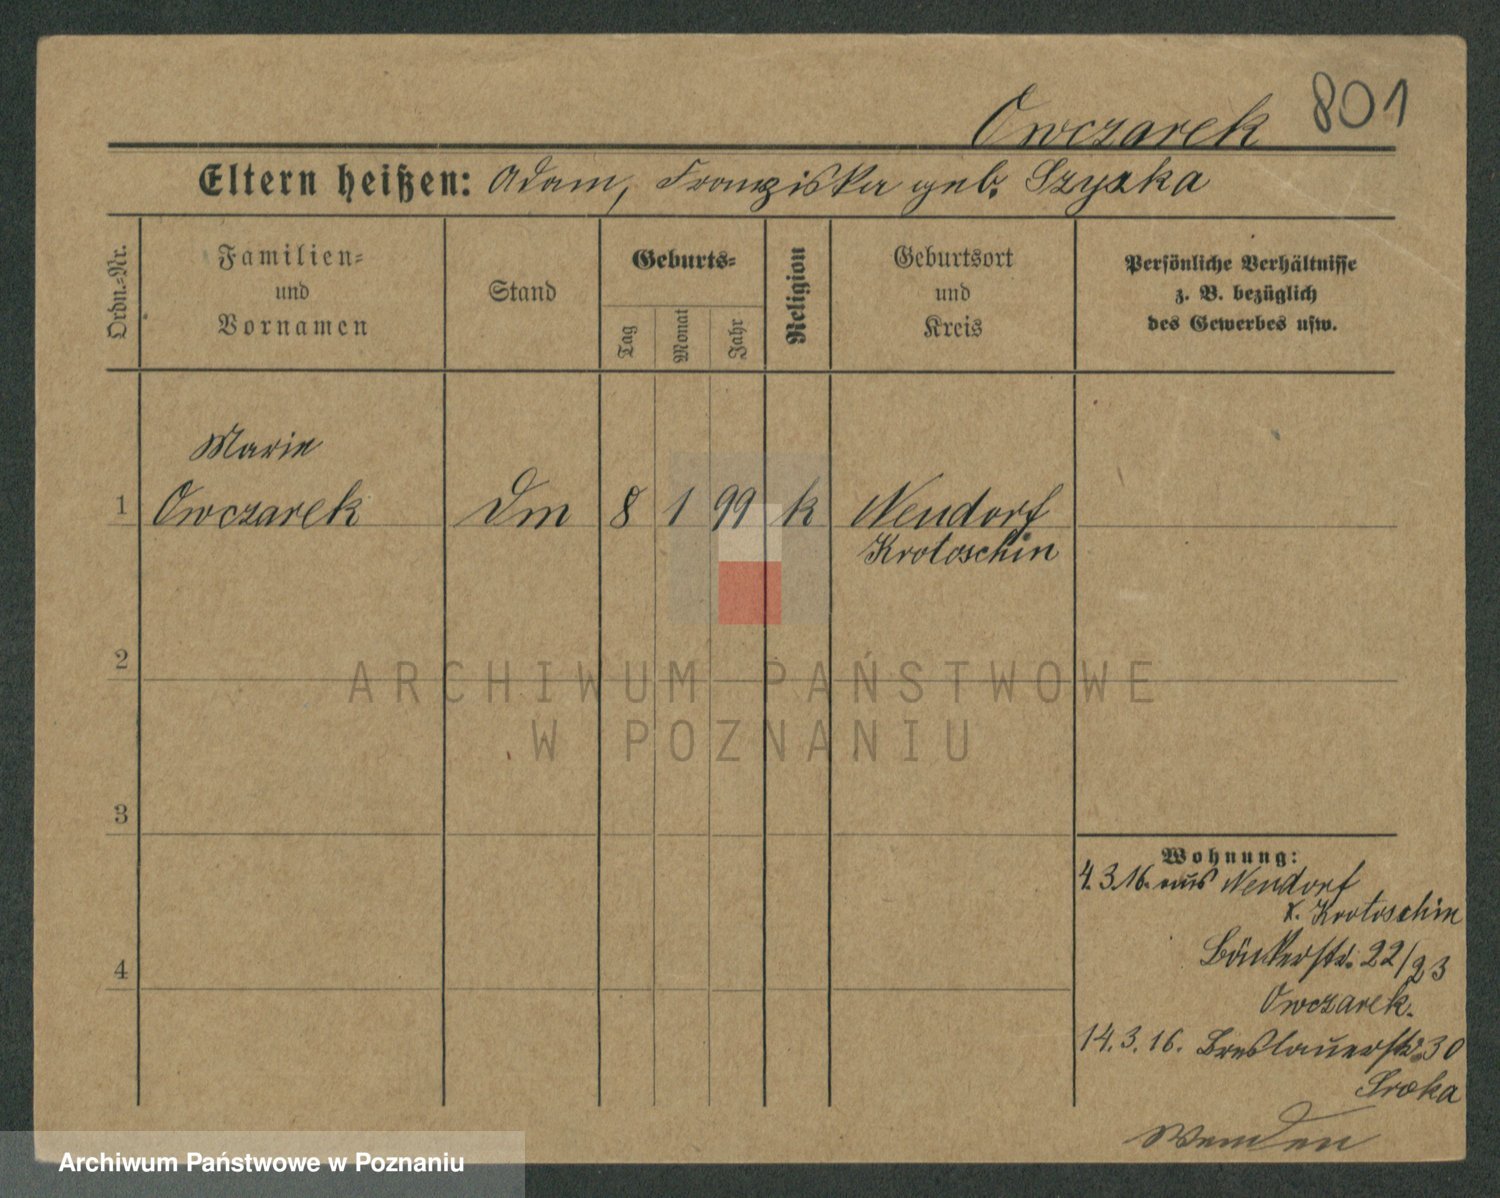 Owczarek 801
Eltern heißen: Adam, Franziska geb. Szyszka
Ordn.-Nr.
Familien-
und
Vornamen
Stand
Geburts-
Tag
Monat
Jahr
Religion
Geburtsort
und
Kreis
Persönliche Verhältnisse
z. B. bezüglich
des Gewerbes usw.
Marie
1 Owczarek Dm 8 1 99 k Neudorf
Krotoschin
2
ARCHIWUM PAŃSTWOWE
W POZNANIU
3
Wohnung:
4.3.16. aus Neudorf
K. Krotoschin
Bäckerstr. 22/23
4
Owczarek.
14.3.16. Breslauerstr. 30
Sroka
Wenden
Archiwum Państwowe w Poznaniu